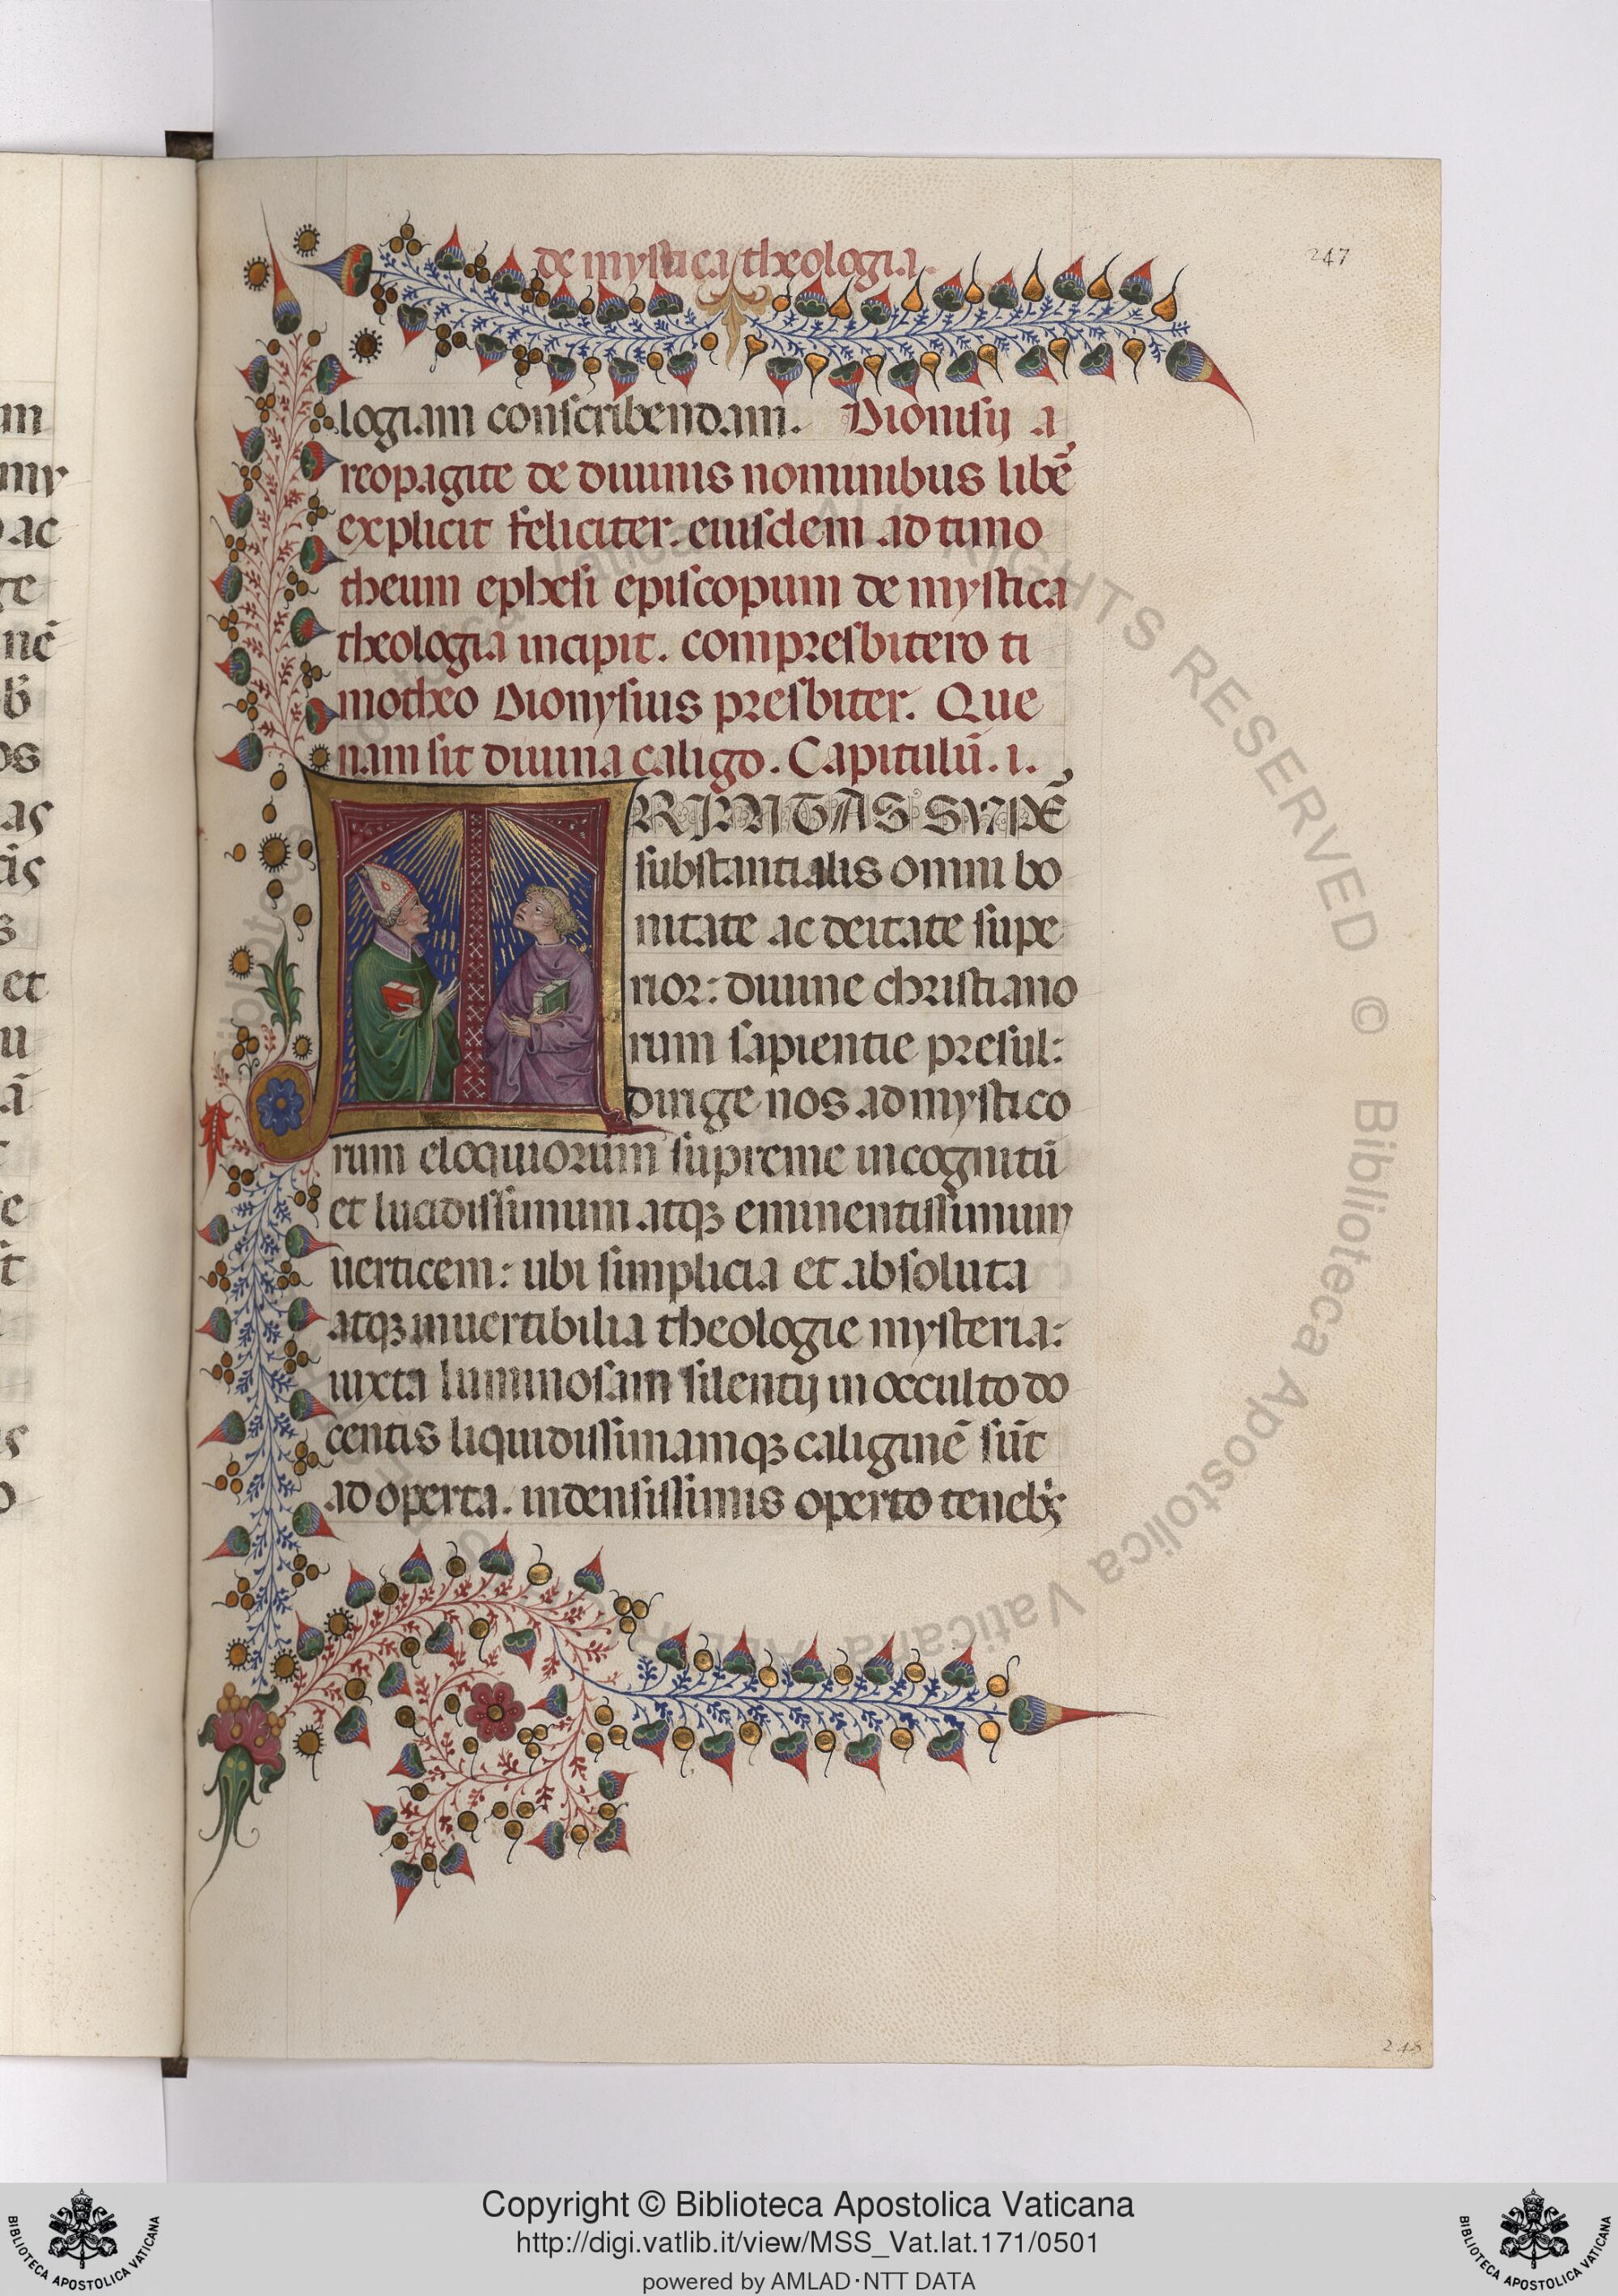 de mystica theologia.
247
logiam conscribendam. Dionisij a
reopagite de diuinis nominibus libē
explicit feliciter. eiusdem ad timo
theum ephesi episcopum de mystica
theologia incipit. compresbitero ti
motheo Dionysius presbiter. Que
nam sit diuina caligo. Capitulū. i.
TRINITAS SUPĒ
substantialis omni bo
nitate ac deitate supe
rior: diuine christiano
rum sapientie presul:
dirige nos ad mystico
rum eloquiorum supreme incognitū
et lucidissimum atqꝫ eminentissimum
uerticem: ubi simplicia et absoluta
atqꝫ inuertibilia theologie mysteria:
iuxta luminosam silentij in occulto do
centis liquidissimamqꝫ caliginē sūt
adoperta. in densissimis operto tenebꝫ
248
Copyright © Biblioteca Apostolica Vaticana
http://digi.vatlib.it/view/MSS_Vat.lat.171/0501
powered by AMLAD·NTT DATA
BIBLIOTECA APOSTOLICA VATICANA
BIBLIOTECA APOSTOLICA VATICANA